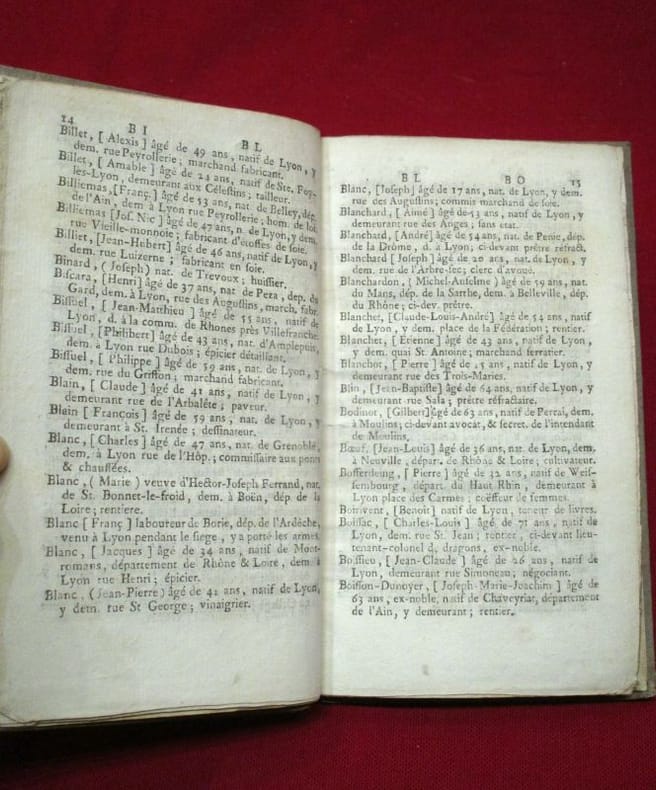 14
B I B L
Billet, [ Alexis] âgé de 49 ans, natif de Lyon, y
dem. rue Peyrollerie; marchand fabricant.
Billet, [ Amable] âgé de 24 ans, natif de Ste. Foy-
les-Lyon, demeurant aux Célestins; tailleur.
Billiemas, [Franç] âgé de 53 ans, nat. de Belley, dép.
de l'Ain, dem à Lyon rue Peyrollerie; hom. de loi.
Billiemas [Jof. Nic] âgé de 47 ans, n. de Lyon, y dem.
rue Vieille-monnoie; fabricant d'étoffes de soie.
Billiet, [Jean-Hubert] âgé de 46 ans, natif de Lyon, y
dem. rue Luizerne; fabricant en soie.
Binard, (Joseph) nat. de Trevoux; huissier.
Biscara, [Henri] âgé de 37 ans, nat. de Peza, dep. du
Gard, dem. à Lyon, rue des Augustins, march. fabr.
Bissuel, [ Jean-Matthieu ] âgé de 55 ans, natif de
Lyon, d. à la comm. de Rhones près Villefranche.
Bissuel, [Philibert] âgé de 43 ans, nat. d'Amplepuis,
dem. à Lyon rue Dubois; épicier détaillant.
Bissuel, [ Philippe] âgé de 59 ans, nat. de Lyon, y
dem. rue du Griffon; marchand fabricant.
Blain, [ Claude] âgé de 41 ans, natif de Lyon,
demeurant rue de l'Arbalête; paveur.
Blain [François] âgé de 59 ans, nat. de Lyon,
demeurant à St. Irenée; dessinateur.
Blanc, [Charles] âgé de 47 ans, nat. de Grenoble,
dem. à Lyon rue de l'Hôp.; commissaire aux ponts
& chaussées.
Blanc, (Marie) veuve d'Hector-Joseph Ferrand, nat.
de St. Bonnet-le-froid, dem. à Boën, dép. de la
Loire; rentiere.
Blanc [Franç] labouteur de Borie, dép. de l'Ardèche,
venu à Lyon pendant le siege, y a porté les armes.
Blanc, [ Jacques ] âgé de 34 ans, natif de Mont-
romans, département de Rhône & Loire, dem. à
Lyon rue Henri; épicier.
Blanc, (Jean-Pierre) âgé de 42 ans, natif de Lyon,
y dem. rue St George; vinaigrier.
B L B O 15
Blanc, [Joseph] âgé de 17 ans, nat. de Lyon, y dem.
rue des Augustins; commis marchand de soie.
Blanchard, [ Aimé] âgé de 53 ans, natif de Lyon, y
demeurant rue des Anges; sans état.
Blanchard, [André] âgé de 54 ans, nat. de Penie, dép.
de la Drôme, d. à Lyon; ci-devant prêtre réfract.
Blanchard [Joseph] âgé de 20 ans, nat. de Lyon, y
dem. rue de l'Arbre-sec; clerc d'avoué.
Blanchardon, [ Michel-Anselme ) âgé de 59 ans, nat.
du Mans, dép. de la Sarthe, dem. à Belleville, dép.
du Rhône; ci-dev. prêtre.
Blanchet, [Claude-Louis-André] âgé de 54 ans, natif
de Lyon, y dem. place de la Fédération; rentier.
Blanchet, [ Etienne] âgé de 43 ans, natif de Lyon,
y dem. quai St. Antoine; marchand ferratier.
Blanchot, [ Pierre] âgé de ans, natif de Lyon, y
demeurant rue des Trois-Maries.
Blin, [Jean-Baptiste] âgé de 64 ans, natif de Lyon, y
demeurant rue Sala; prêtre réfractaire.
Bodinot, [Gilbert] âgé de 63 ans, natif de Perrai, dem.
à Moulins; ci-devant avocat, & secret. de l'intendant
de Moulins.
Bœuf, [Jean-Louis] âgé de 36 ans, nat. de Lyon, dem.
à Neuville, départ. de Rhône & Loire; cultivateur.
Boffersheing, [Pierre] âgé de 32 ans, natif de Weis-
sembourg, départ. du Haut Rhin, demeurant à
Lyon place des Carmes; coëffeur de femmes.
Boinvent, [Benoît] natif de Lyon, teneur de livres.
Boissac, [ Charles-Louis ] âgé de 71 ans, natif de
Lyon, dem. rue St. Jean; rentier, ci-devant lieu-
tenant-colonel d. dragons, ex-noble.
Boissieu, [ Jean-Claude] âgé de 26 ans, natif de
Lyon, demeurant rue Simoneau; négociant.
Boisson-Dunoyer, [Joseph-Marie-Joachim] âgé de
63 ans, ex-noble, natif de Chaveyriat, département
de l'Ain, y demeurant; rentier.